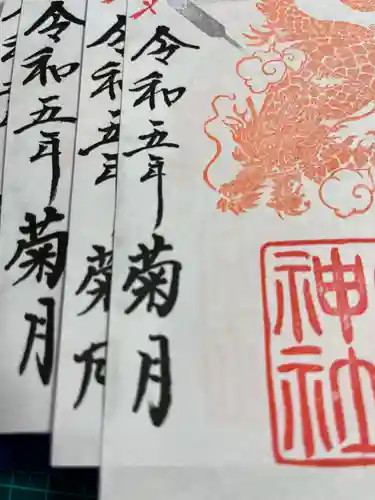 令和五年菊月
令和五年菊月
令和五年菊月
神社